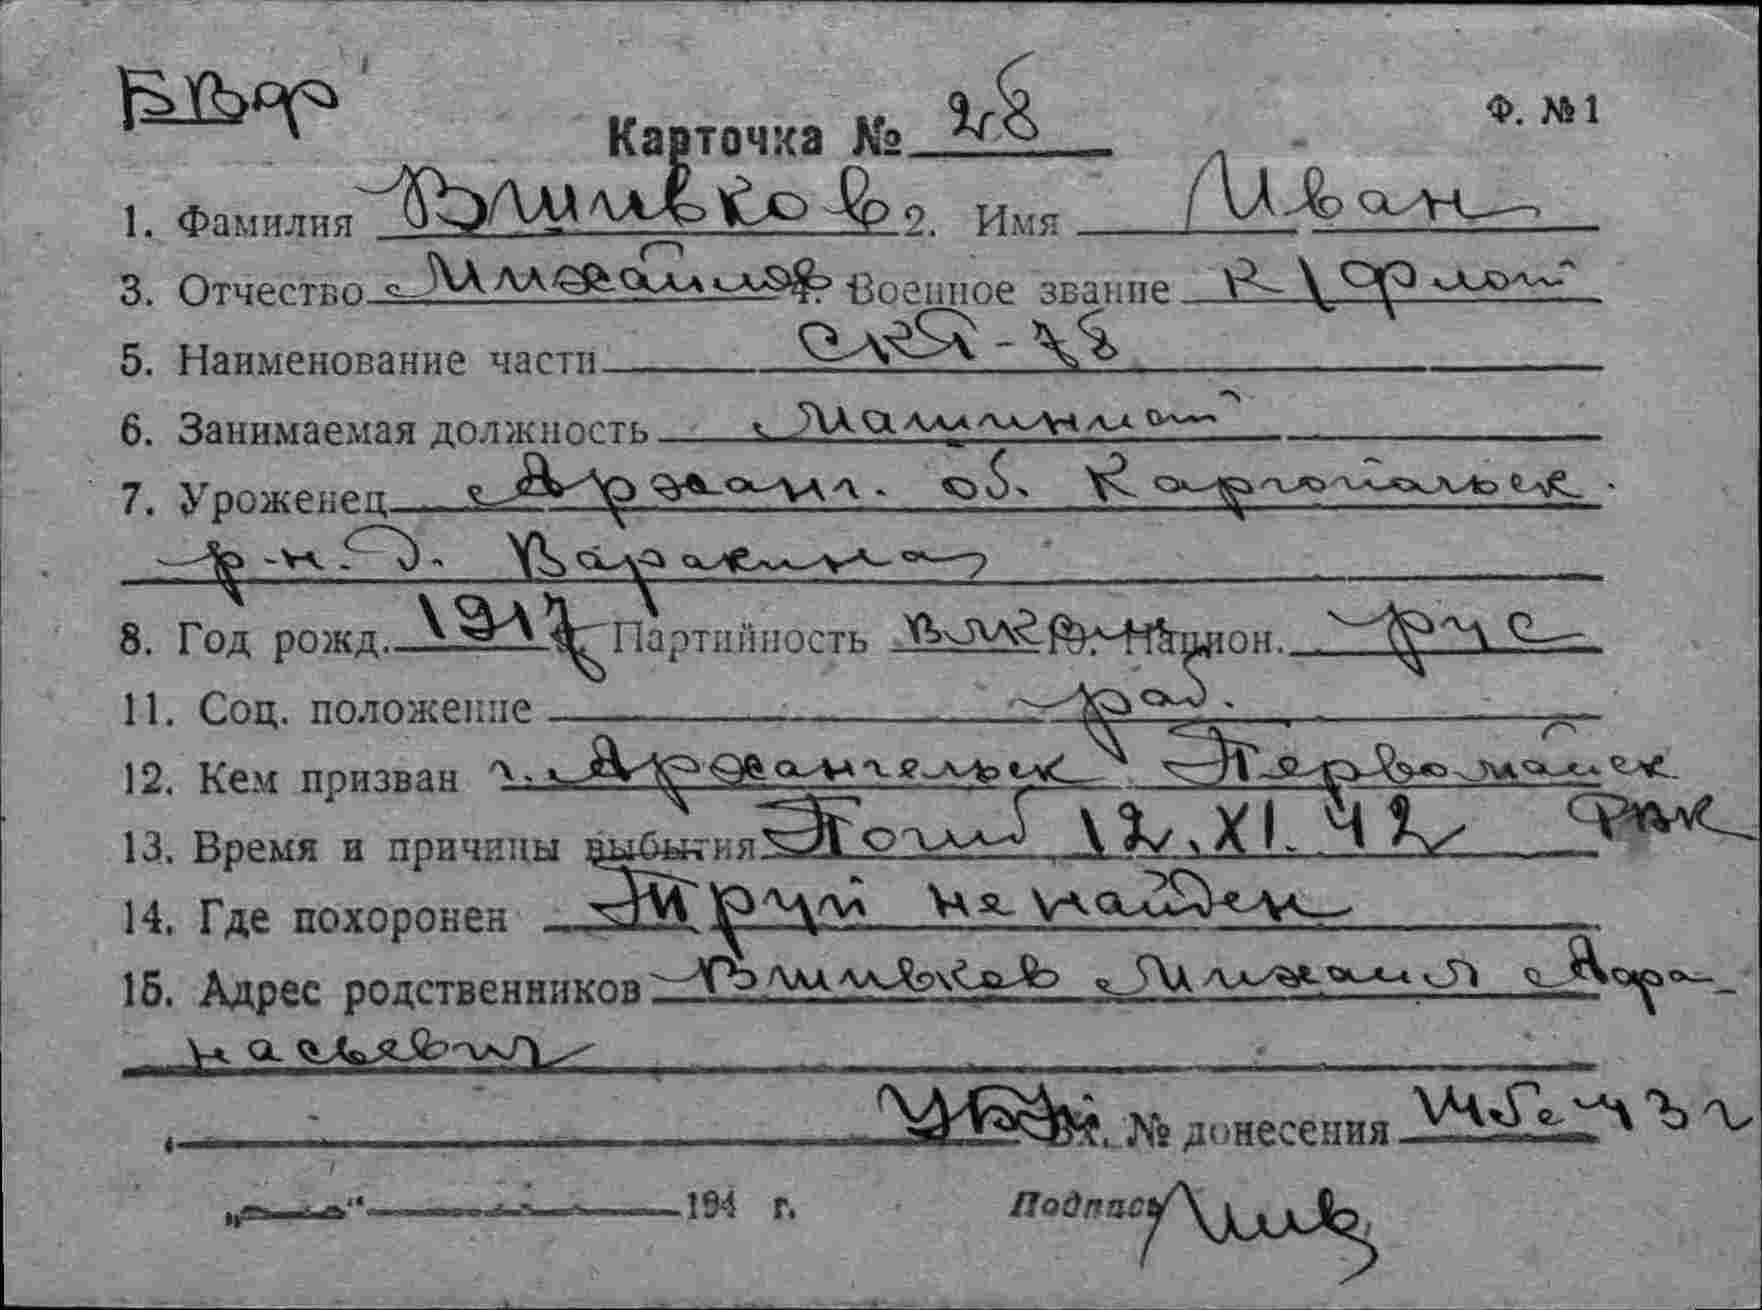 БВФ
Карточка № 28 Ф. №1
1. Фамилия Вшивков 2. Имя Иван
3. Отчество Михайлов. Военное звание К/флот
5. Наименование части СКА-78
6. Занимаемая должность Машинист
7. Уроженец Арханг. об. Каргопольск.
р-н. д. Варакина
8. Год рожд. 1917 Партийность влксм Национ. рус
11. Соц. положение раб.
12. Кем призван г. Архангельск Первомайск
13. Время и причины выбытия Погиб 12.XI.42 РВК
14. Где похоронен Труп не найден
15. Адрес родственников Вшивков Михаил Афа-
насьевич
№ донесения 43г
„ “ 194 г. Подпись